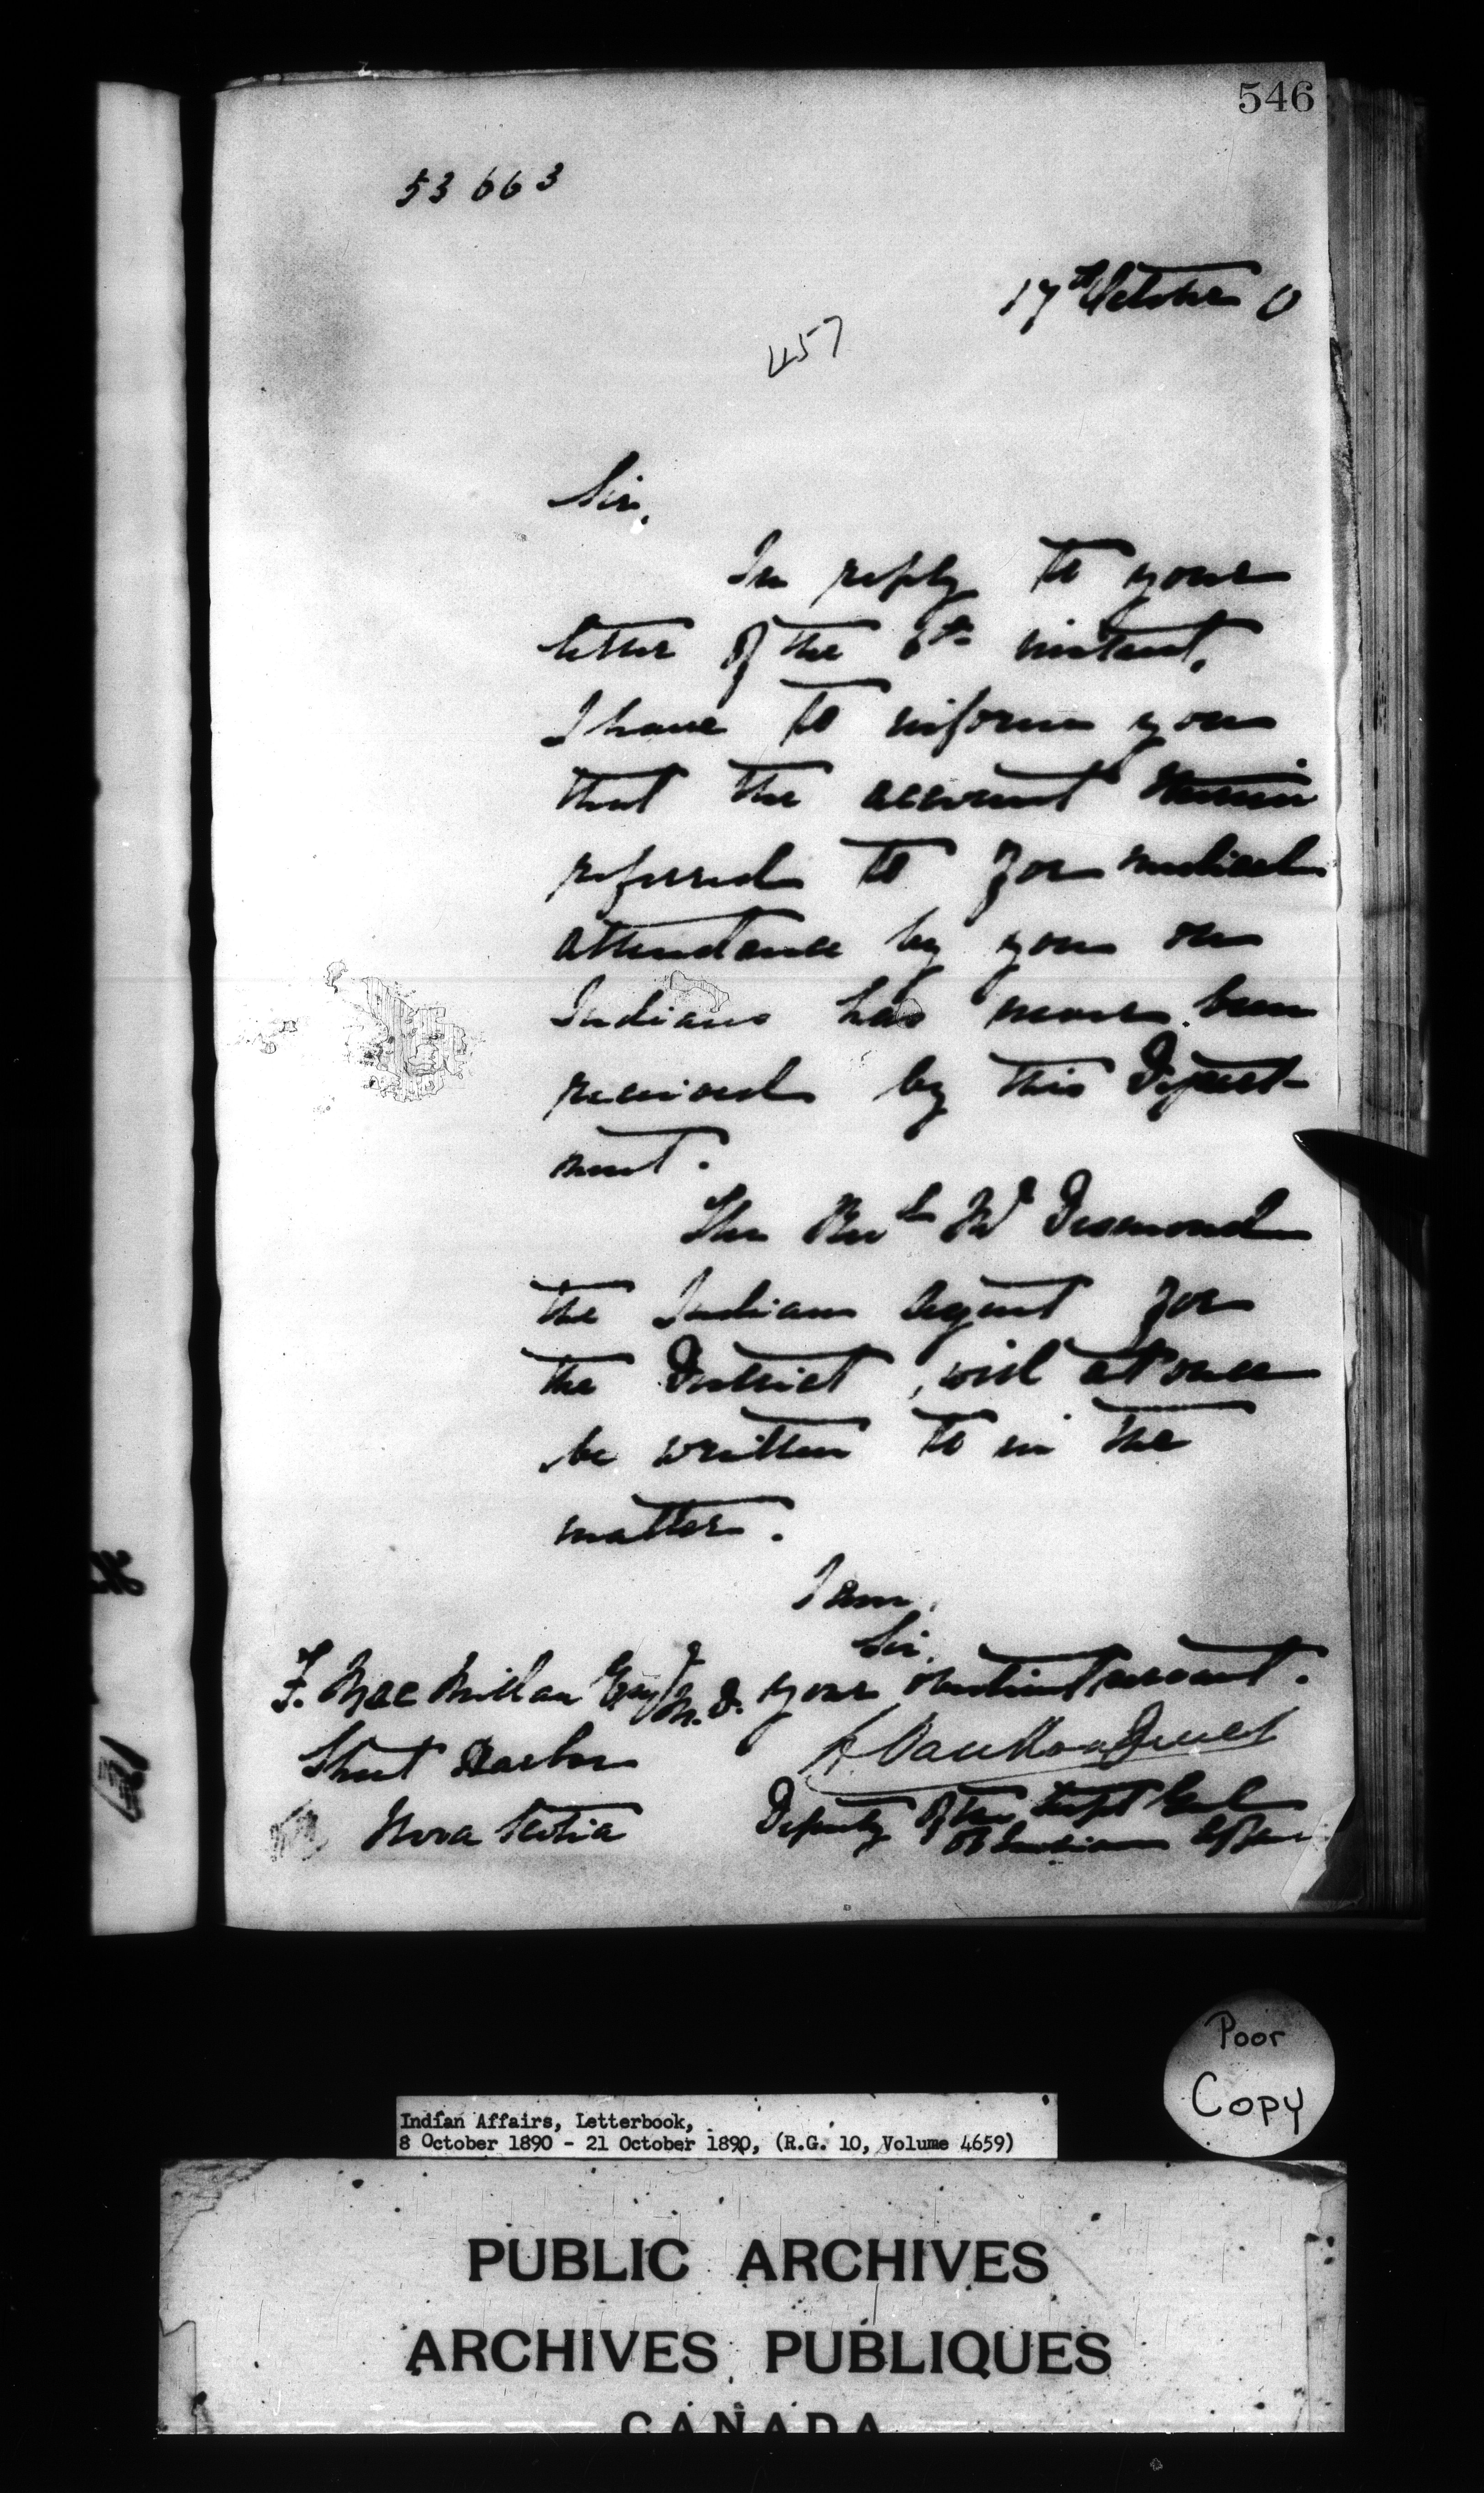 546
53663
17th October 0
457
Sir,
In reply to your
letter of the 6th instant,
I have to inform you
that the account therein
referred to for medical
attendance by you on
Indians has never been
received by this Depart-
ment.
The Revd Mr Desmond
the Indian Agent for
the District, will at once
be written to in the
matter.
I am,
Sir,
F. MacMillan Esqr M.D. your obedient servant.
Sheet Harbor
L. Vankoughnet
Nova Scotia
Deputy of the Supt Genl
of Indian Affairs
Poor
Copy
Indian Affairs, Letterbook,
8 October 1890 - 21 October 1890, (R.G. 10, Volume 4659)
PUBLIC ARCHIVES
ARCHIVES PUBLIQUES
CANADA